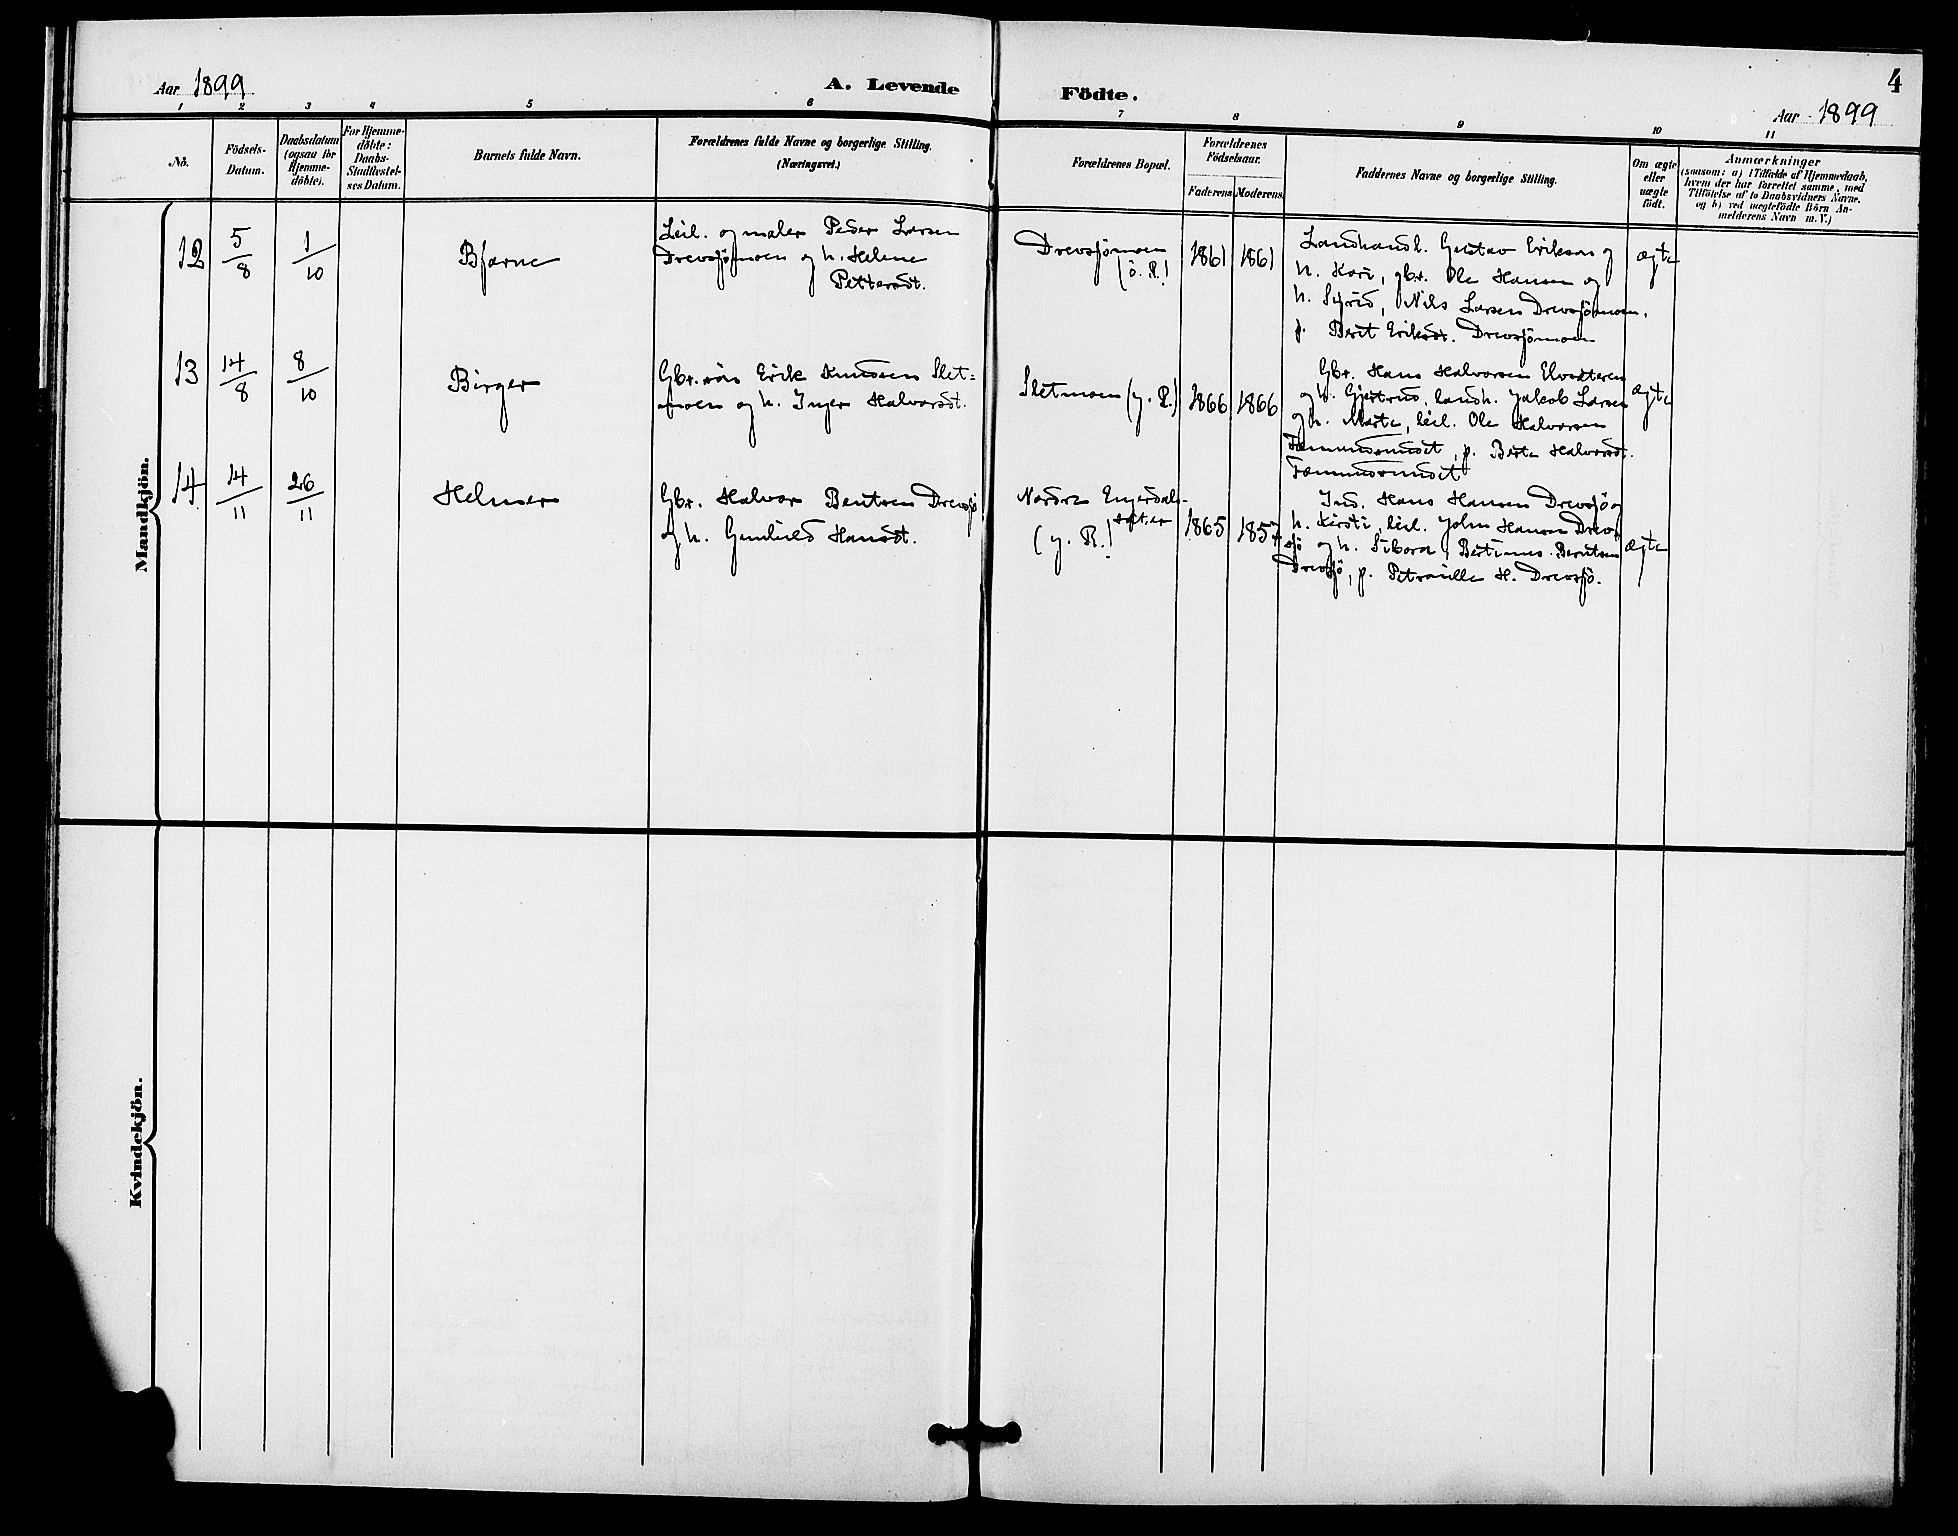 Aar 1899
A. Levende
Födte.
4
Aar 1899
1 2 3 4 5 6 7 8 9 10 11
No.
Födsels-
Datum.
Daabsdatum
(ogsaa for
Hjemme-
döbte).
For Hjemme-
döbte:
Daabs-
Stadfæstel-
ses Datum.
Barnets fulde Navn.
Forældrenes fulde Navne og borgerlige Stilling.
(Næringsvei.)
Forældrenes Bopæl.
Forældrenes
Födselsaar.
Faderens
Moderens
Faddernes Navne og borgerlige Stilling.
Om ægte
eller
uægte
födt.
Anmærkninger
(saasom: a) i Tilfælde af Hjemmedaab,
hvem der har forrettet samme, med
Tilföielse af to Daabsvidners Navne,
og b) ved uægtefödte Börn An-
melderens Navn m. V.)
Mandkjön.
12
5/8
1/10
Bjarne
Leil. og maler Peder Larsen
Drevsjömoen og h. Helene
Pettersdt.
Drevsjömoen
(ö. R.)
1861
1861
Landhandl. Gustav Eriksen og
h. Kari, gbr. Ole Hansen og
h. Sigrid, Nils Larsen Drevsjömoen,
p. Berit Eriksdt. Drevsjömoen
ægte
13
14/8
8/10
Birger
Gbr. Erik Knudsen Slet=
moen og h. Inger Halvorsdt.
Sletmoen (y. R.)
1866
1866
Gbr. Hans Halvorsen Elvesæteren
og h. Gjertrud, landh. Jakob Larsen
og h. Marte, leil. Ole Halvorsen
Fæmundsundet, p. Berte Halvorsdt.
Fæmundsundet
ægte
14
14/11
26/11
Helmer
Gbr. Halvor Bentsen Drevsjö
og h. Gunhild Hansdt.
Nordre Engerdals-
(y. R.)
1865
1857
Ind. Hans Hansen Drevsjö og
h. Kirsti, leil. John Hansen Drev-
sjö og h. Sibora, Bertinus Berntsen
Drevsjö, p. Petronille H. Drevsjö.
ægte
Kvindekjön.